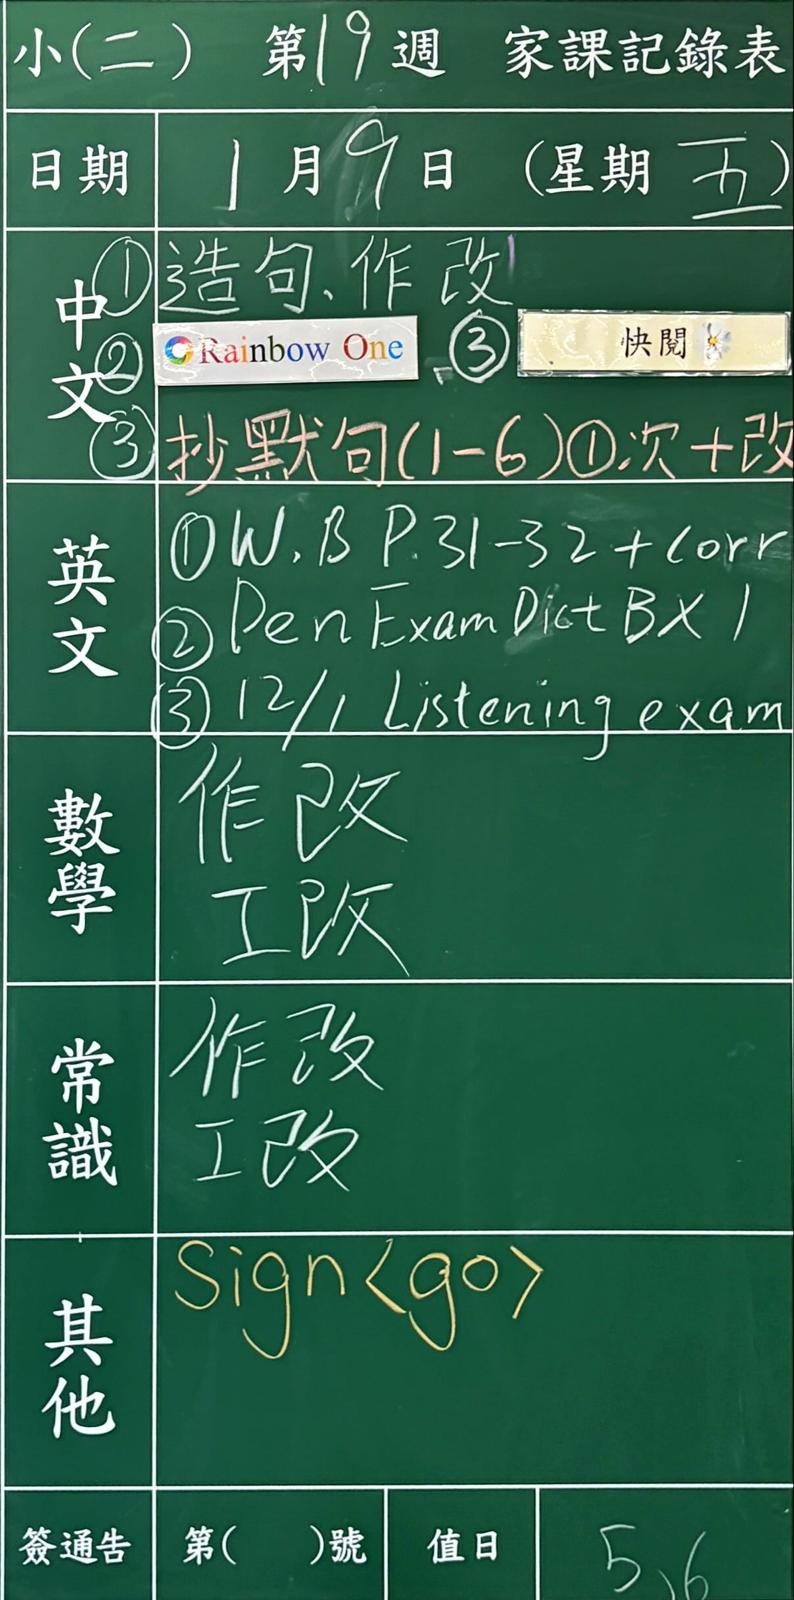 小(二) 第19週 家課記錄表
日期 1月9日 (星期五)
中文
① 造句、作改
② Rainbow One ③ 快閱
③ 抄默句(1-6)①次+改
英文
① W.B P.31-32+corr
② Pen Exam Dict BX1
③ 12/1 Listening exam
數學
作改
工改
常識
作改
工改
其他
Sign<go>
簽通告 第( )號 值日 5、6